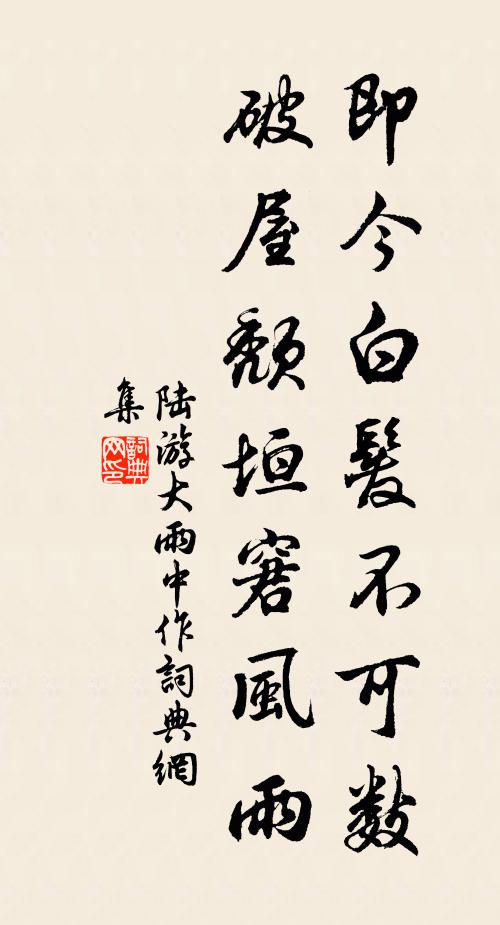 即今白髮不可數
破屋頹垣窘風雨
陆游大雨中作詞典網
集
詞典
网印